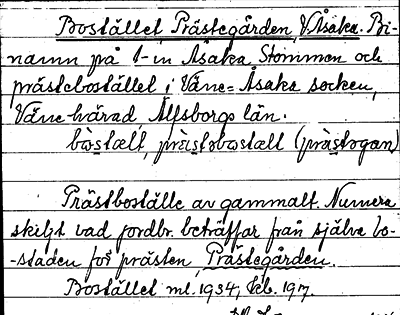 Bostället, Prästegården, V Åsaka. Bi-
namn på 1-in Åsaka Stommen och
prästebostället i Väne=Åsaka socken,
Väne härad Älfsborgs län.
bòstælt, pràstəbostælt (pràstəgan)
Prästboställe av gammalt. Numera
skiljt vad jordbr. beträffar från själva bo-
-staden för prästen, Prästegården.
Bostället ml. 1934, Feb. 197.